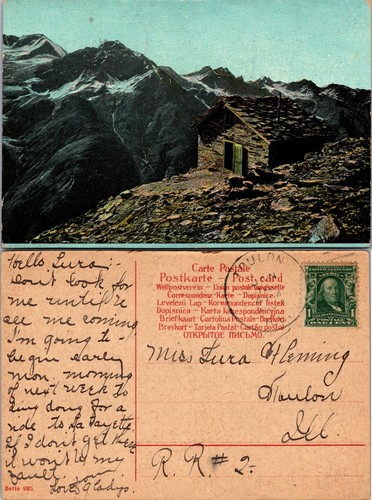 Hello Lura:-
Don't look for
me until
all me coming
I'm going to
begin early
mon. morning
of next week to
for a
ride to La Fayette.
If I don't get there
it won't be my
fault.
Love, Gladys.
Serie 920.
Carte Postale
Postkarte - Post card
Weltpostverein - Union postale universelle
Correspondenz-Karte - Dopisnice
Levelező Lap - Korespondencni listek
Dopisnica - Karta korespondencyjna
Briefkaart - Cartolina Postale - Brefkort
Brevkort - Tarjeta Postal - Cartão postal
ОТКРЫТОЕ ПИСЬМО.
TOULON
ONE CENT
Miss Lura Fleming
Toulon
Ill.
R. R # 2.